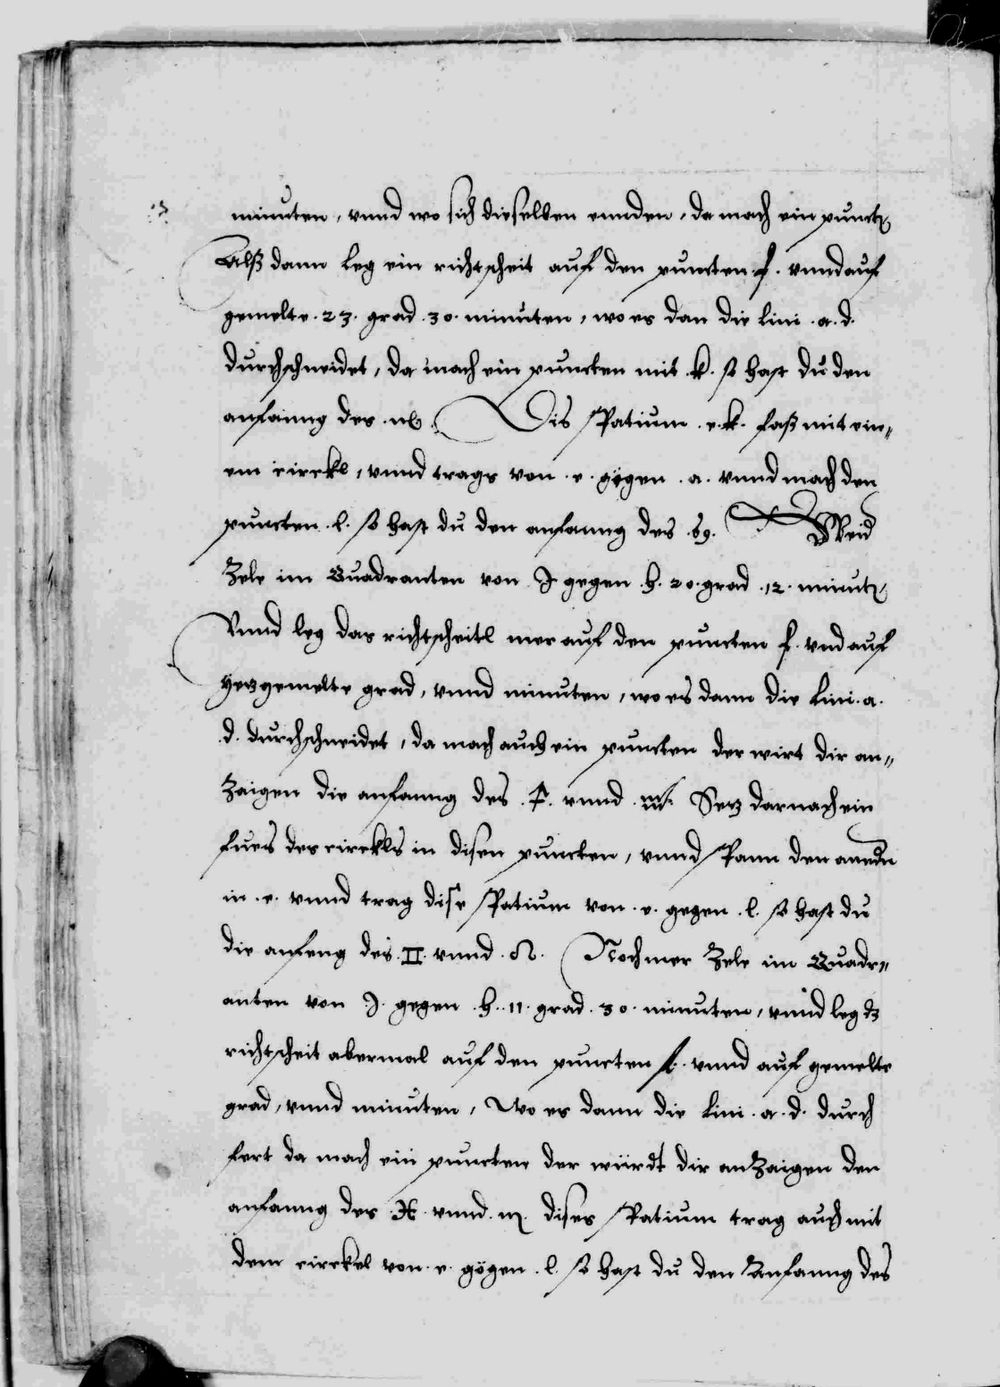 minuten, vnnd wo sich dieselben ennden, da mach ein punct
Alß dann leg ein richtscheit auf den puncten .f. vnnd auf
gemelte .23. grad .30. minuten, wo es dan die lini .a.d.
durchschneidet, da mach ein puncten mit .k. so hast du den
anfanng des .♑. Dis spatium .e.k. faß mit ein„
em circkl, vnnd trags von .e. gögen .a. vnnd mach den
puncten .l. so hast du den anfanng des .69. Weid
Zele im Quadranten von .J. gegen .h. 20. grad .12. minut
Vnnd leg das richtscheitl mer auf den puncten f. vnd auf
yezgemelte grad, vnnd minuten, wo es dann die lini .a.
.d. durchschneidet, da mach auch ein puncten der wirt dir an„
Zaigen die anfanng des .♐. vnnd .♒. Sez darnach ein
fues des circkls in disen puncten, vnnd spann den anndn
in .e. vnnd trag dise spatium von .e. gegen .l. so hast du
die anfeng des .II. vnnd .♌. Noch mer Zele im Quadr„
anten von .J. gegen .h. 11. grad .30. minuten, vnnd leg dz
richtscheit abermal auf den puncten f. vnnd auf gemelte
grad, vnnd minuten, Wo es dann die lini .a.d. durch
fert da mach ein puncten der würdt dir anZaigen den
anfanng des .♓. vnnd .♏. dises spatium trag auch mit
dem circkel von .e. gögen .l. so hast du den Anfanng des